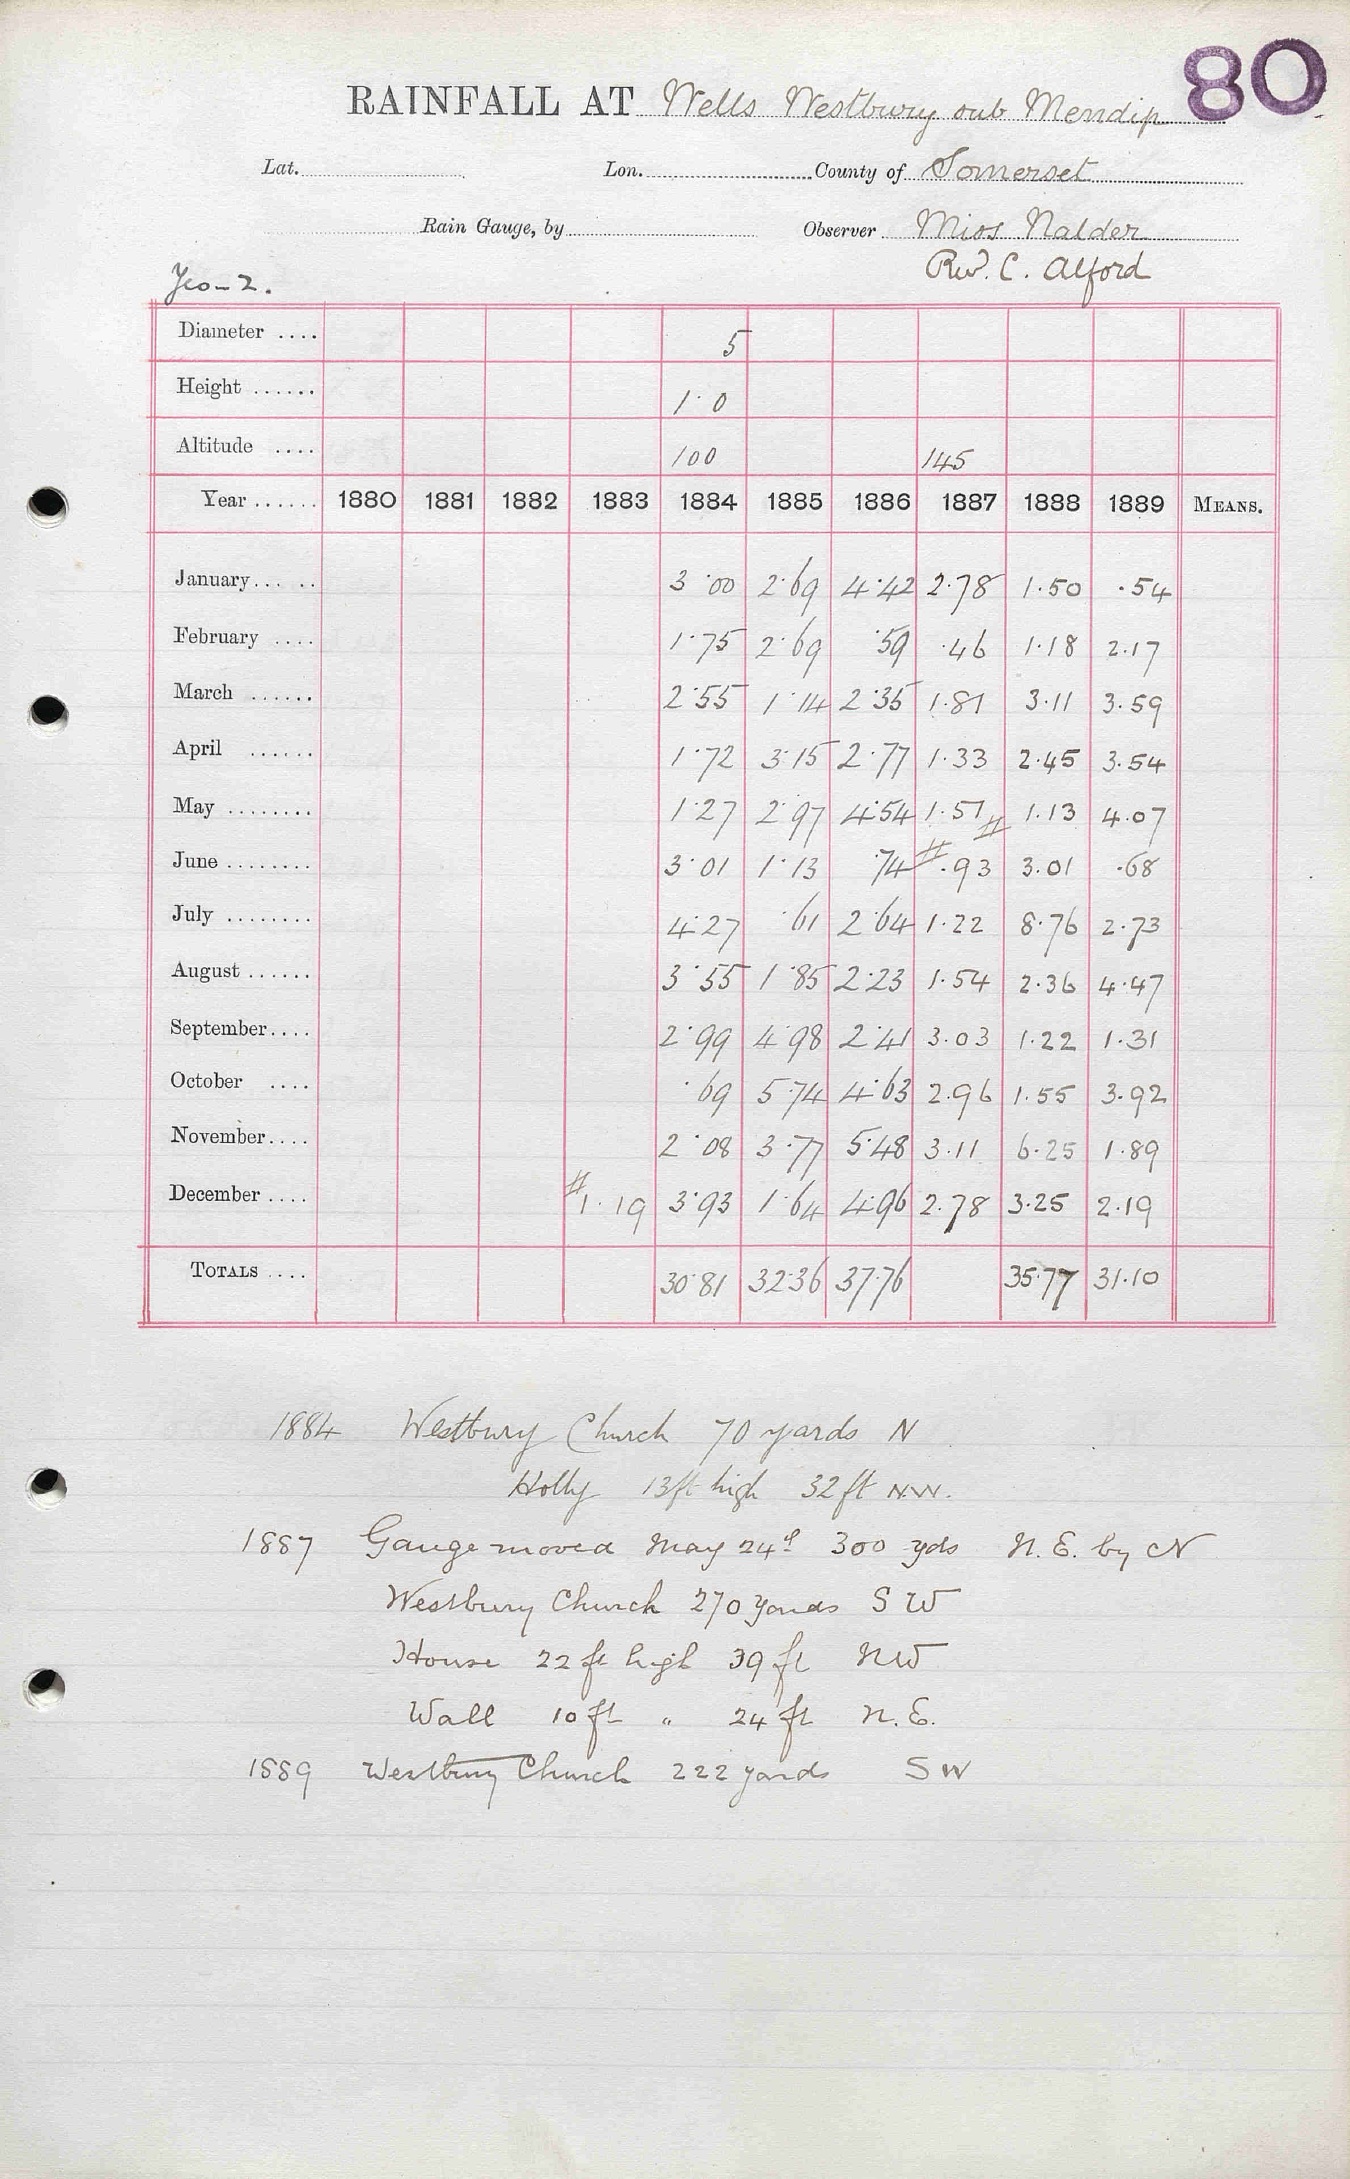 80
RAINFALL AT Wells Westbury sub Mendip
Lat. Lon. County of Somerset
Rain Gauge, by Observer Miss Nalder
Rev. C. Alford
Yeo-2.
Diameter .... 5
Height ...... 1·0
Altitude .... 100 145
Year ...... 1880 1881 1882 1883 1884 1885 1886 1887 1888 1889 MEANS.
January... .. 3·00 2·69 4·42 2·78 1·50 ·54
February .... 1·75 2·69 ·59 ·46 1·18 2·17
March ...... 2·55 1·14 2·35 1·81 3·11 3·59
April ...... 1·72 3·15 2·77 1·33 2·45 3·54
May ........ 1·27 2·97 4·54 1·57 # 1·13 4·07
June ........ 3·01 1·13 ·74 # ·93 3·01 ·68
July ........ 4·27 ·61 2·64 1·22 8·76 2·73
August ...... 3·55 1·85 2·23 1·54 2·36 4·47
September.... 2·99 4·98 2·41 3·03 1·22 1·31
October .... ·69 5·74 4·63 2·96 1·55 3·92
November.... 2·08 3·77 5·48 3·11 6·25 1·89
December .... # 1·19 3·93 1·64 4·96 2·78 3·25 2·19
TOTALS .... 30·81 32·36 37·76 35·77 31·10
1884 Westbury Church 70 yards N
Holly 13ft high 32ft N.W.
1887 Gauge moved May 24th 300 yds N. E. by N
Westbury Church 270 yards S W
House 22 ft high 39 ft NW
Wall 10 ft " 24 ft N. E.
1889 Westbury Church 222 yards S W